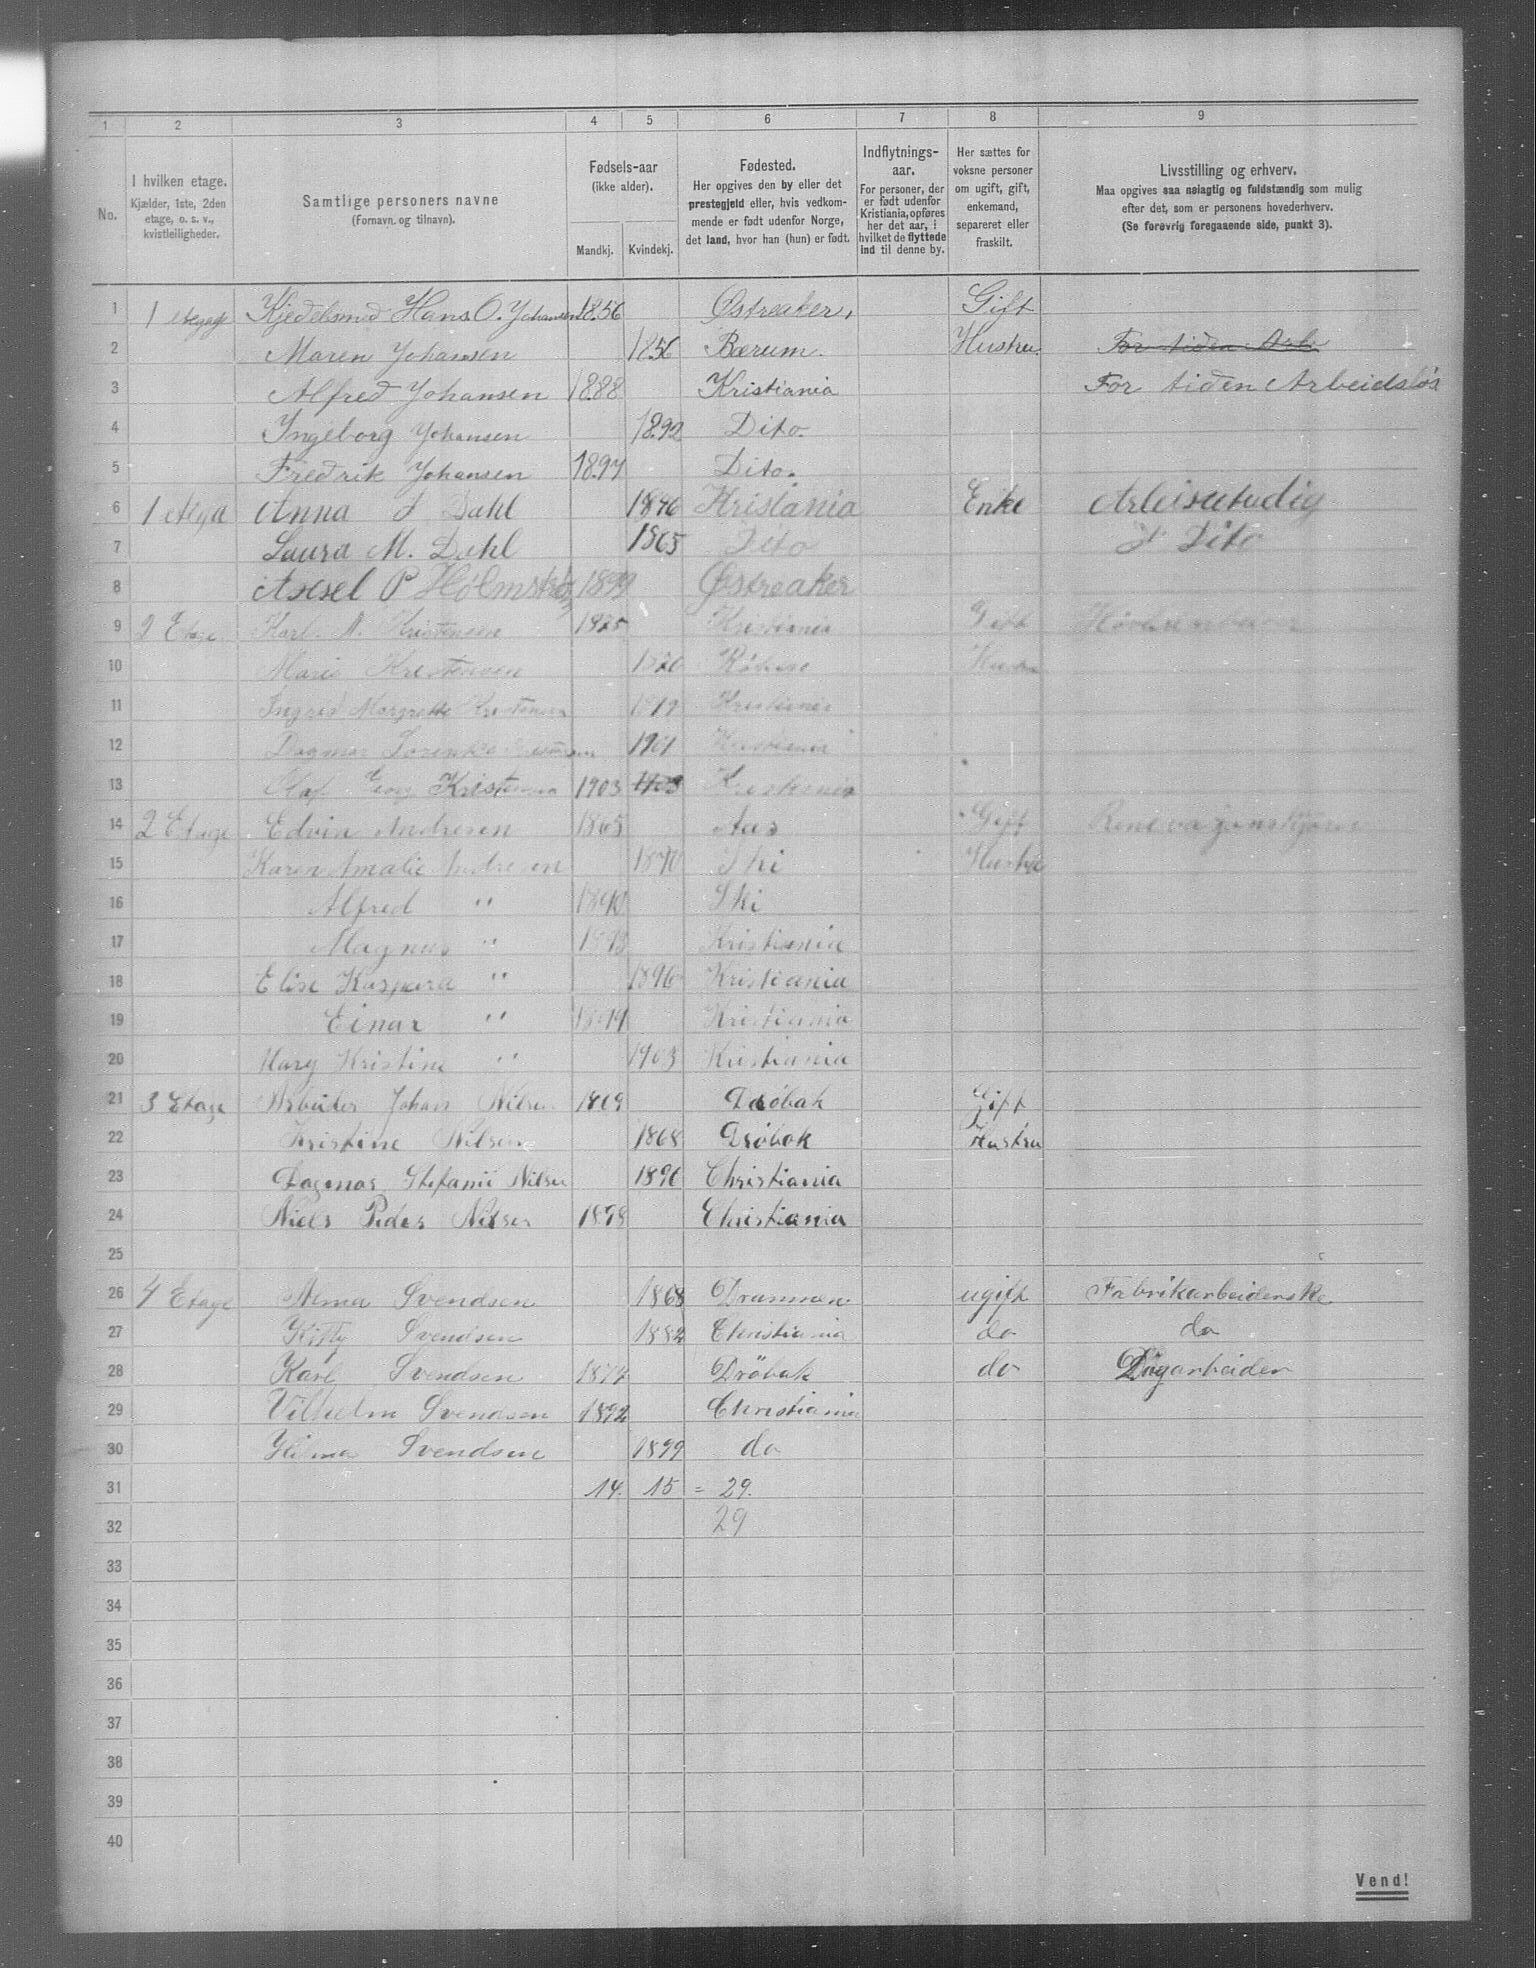 1 2 3 4 5 6 7 8 9
No.
I hvilken etage.
Kjælder, 1ste, 2den
etage, o. s. v.,
kvistleiligheder.
Samtlige personers navne
(Fornavn og tilnavn).
Fødsels-aar
(ikke alder).
Mandkj. Kvindekj.
Fødested.
Her opgives den by eller det
prestegjeld eller, hvis vedkom-
mende er født udenfor Norge,
det land, hvor han (hun) er født.
Indflytnings-
aar.
For personer, der
er født udenfor
Kristiania, opføres
her det aar, i
hvilket de flyttede
ind til denne by.
Her sættes for
voksne personer
om ugift, gift,
enkemand,
separeret eller
fraskilt.
Livsstilling og erhverv.
Maa opgives saa nøiagtig og fuldstændig som mulig
efter det, som er personens hovederhverv.
(Se forøvrig foregaaende side, punkt 3).
1 1 Kjedelsmed Hans O. Johansen 1856 Østreaker, Gift
2 Maren Johansen 1856 Bærum. Hustru. For tiden Arb
3 Alfred Johansen 1888 Kristiania For tiden Arbeidsløs
4 Ingeborg Johansen 1892 Dito.
5 Fredrik Johansen 1897 Dito.
6 1 Anna J Dahl 1846 Kristania Enke
7 Laura M. Dahl 1865 Dito Dito
8 Axsel P 1899 Østreaker
9 2 Etage Karl Kristensen 1875 Kristiania Gift
10 Marie Kristensen
11 Ingrid Margrethe Kristensen Kristiania
12 Dagmar 1901 Kristiania
13 Olaf Georg Kristensen 1903 1903 Kristiania
14 2 Etage Edvin Andresen 1865 Aas Gift
15 Karen Amalie Andresen 1870 Ski Hustru
16 Alfred " 1890 Ski
17 Magnus " 1893 Kristiania
18 Elise Kaspara " 1896 Kristiania
19 Einar " 1899 Kristiania
20 Mary Kristine " 1903 Kristiania
21 3 Etage Arbeider Johan Nilsen 1869 Drøbak Gift
22 Kristine Nilsen 1868 Drøbak Hustru
23 Dagmar Stefanie Nilsen 1896 Christiania
24 Niels Peder Nilsen 1898 Christiania
25
26 4 Etage Svendsen 1868 Drammen ugift Fabrikarbeiderske
27 Kitty Svendsen 1882 Christiania do do
28 Karl Svendsen 1877 Dröbak do Dagarbeider
29 Vilhelm Svendsen 1892 Christiania
30 Svendsen 1899 do
31 14. 15 = 29.
32 29
33
34
35
36
37
38
39
40
Vend!